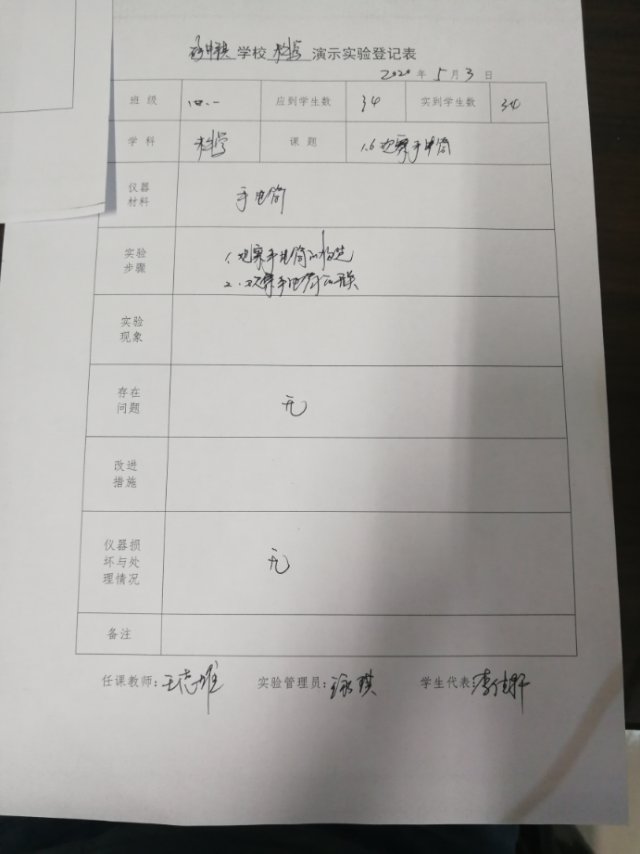 学校 科学 演示实验登记表
2020年5月3日
班级 四.一 应到学生数 34 实到学生数 34
学科 科学 课题 1.6观察手电筒
仪器
材料
手电筒
实验
步骤
1.观察手电筒的构造
2.观察手电筒的
实验
现象
存在
问题
无
改进
措施
仪器损
坏与处
理情况
无
备注
任课教师:王志雄 实验管理员: 学生代表: